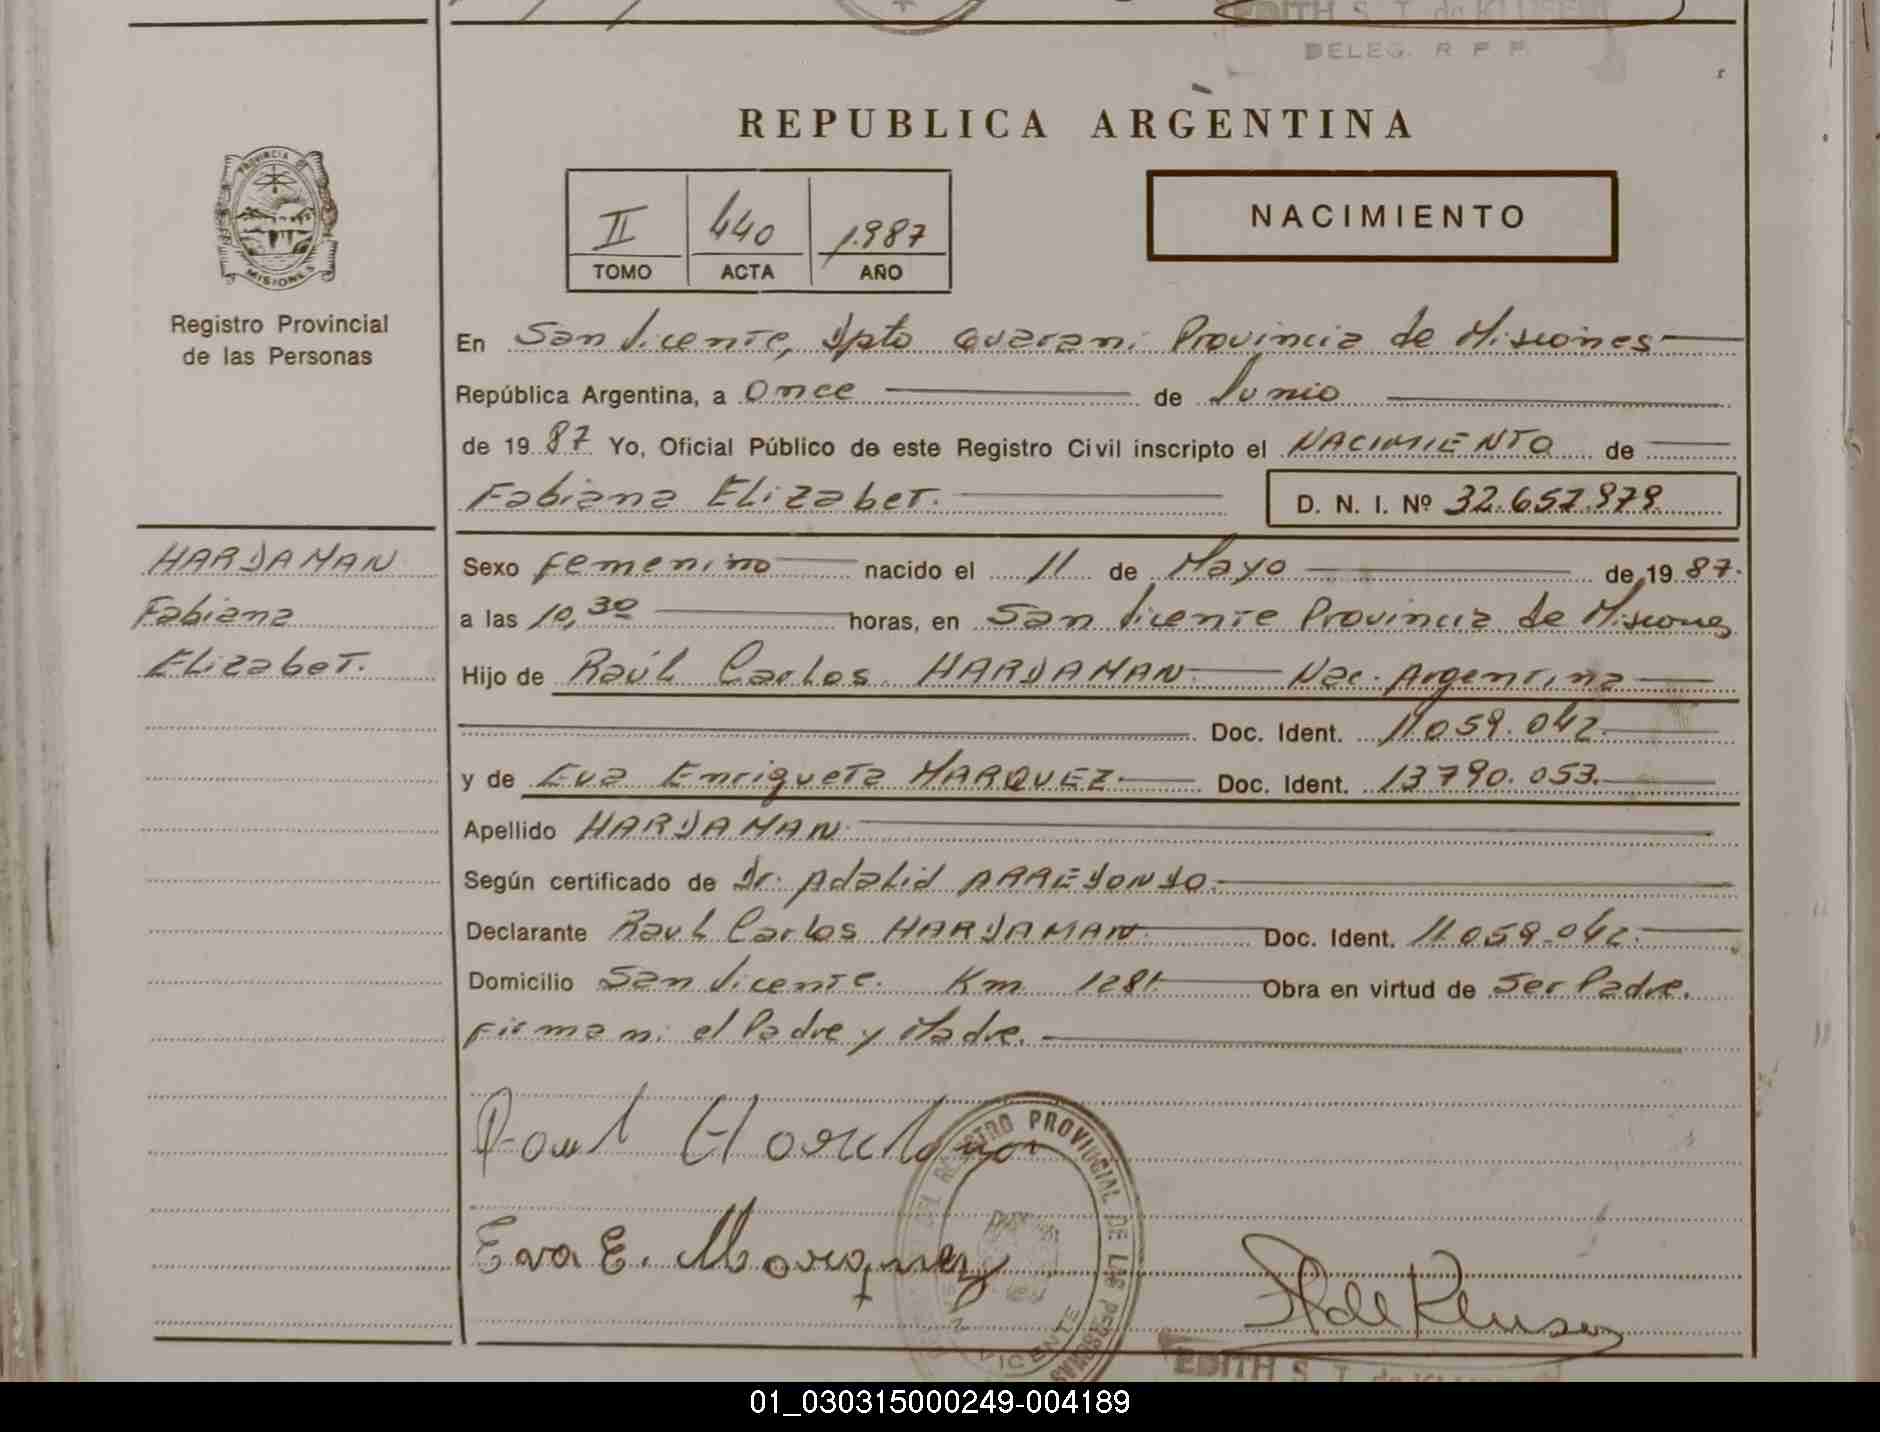 DELEG. R P P.
REPUBLICA ARGENTINA
PROVINCIA DE
MISIONES
Registro Provincial
de las Personas
II 440 1.987
TOMO ACTA AÑO
NACIMIENTO
En San Vicente, Dpto Guarani Provincia de Misiones
República Argentina, a Once de Junio
de 19 87 Yo, Oficial Público de este Registro Civil inscripto el NACIMIENTO de
Fabiana Elizabet. D. N. I. Nº 32.657.979
HARDAMAN
Fabiana
Elizabet.
Sexo femenino nacido el 11 de Mayo de 19 87.
a las 10,30 horas, en San Vicente Provincia de Misiones
Hijo de Raúl Carlos HARDAMAN Nac. Argentina
Doc. Ident. 11059.042.
y de Eva Enriqueta MARQUEZ Doc. Ident. 13790.053.
Apellido HARDAMAN
Según certificado de Dr. Adalid ARREDONDO.
Declarante Raul Carlos HARDAMAN Doc. Ident. 11059.042.
Domicilio San Vicente. Km 1281 Obra en virtud de Ser Padre.
Firman: el Padre y Madre.
Raul Hardaman
Eva E. Marquez
DEL REGISTRO PROVINCIAL DE LAS PERSONAS
VICENTE
EDITH S. T. de
01_030315000249-004189